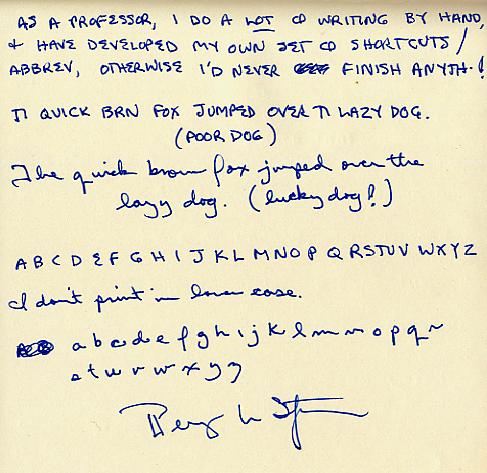 AS A PROFESSOR, I DO A LOT OF WRITING BY HAND,
+ HAVE DEVELOPED MY OWN SET OF SHORTCUTS/
ABBREV, OTHERWISE I'D NEVER FINISH ANYTH-!
TI QUICK BRN FOX JUMPED OVER TI LAZY DOG.
(POOR DOG)
The quick brown fox jumped over the
lazy dog. (lucky dog!)
A B C D E F G H I J K L M N O P Q R S T U V W X Y Z
I don't print in lower case.
a b c d e f g h i j k l m n o p q r
s t u v w x y z